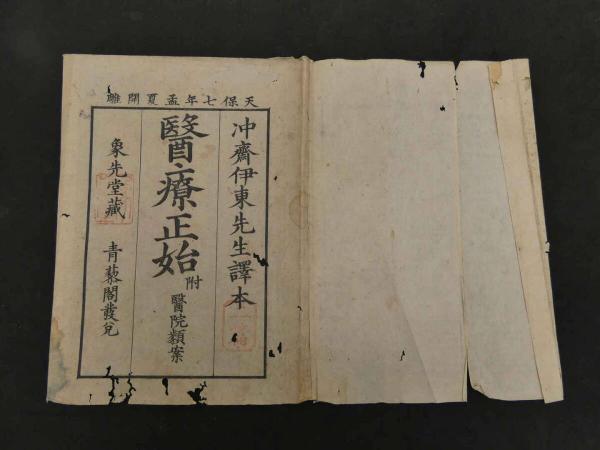 天保七年孟夏開雕
冲齋伊東先生譯本
醫療正始
附
醫院類案
象先堂藏
青藜閣發兌